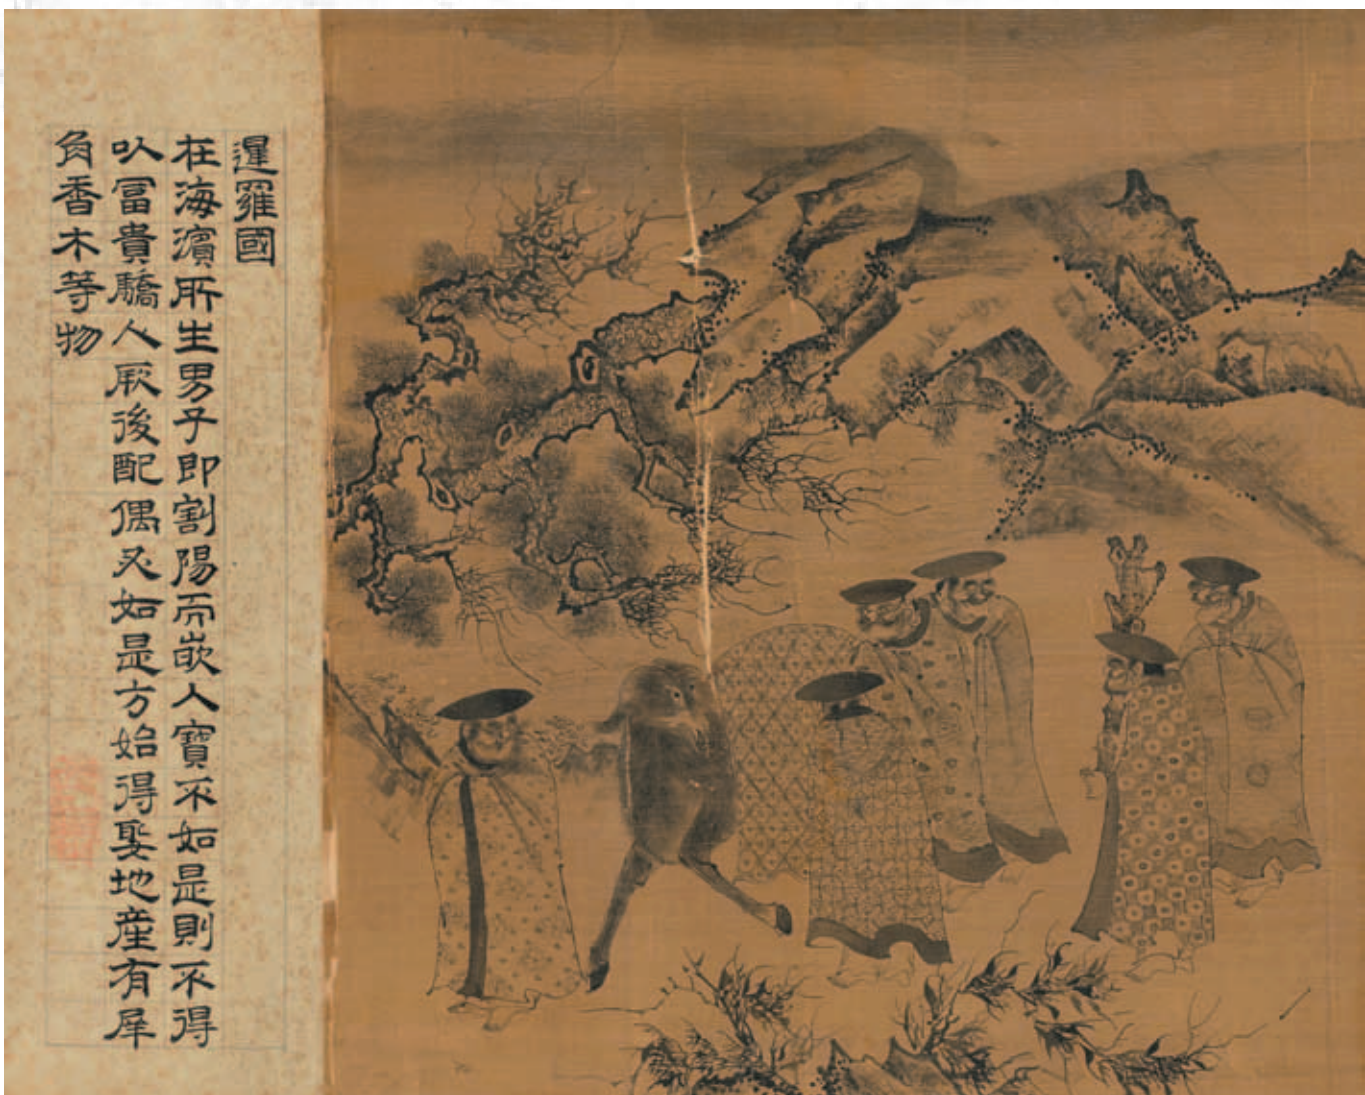 暹羅國
在海濱所生男子即割陽而嵌人寶不如是則不得
以冨貴驕人厥後配偶又如是方始得娶地產有犀
角香木等物